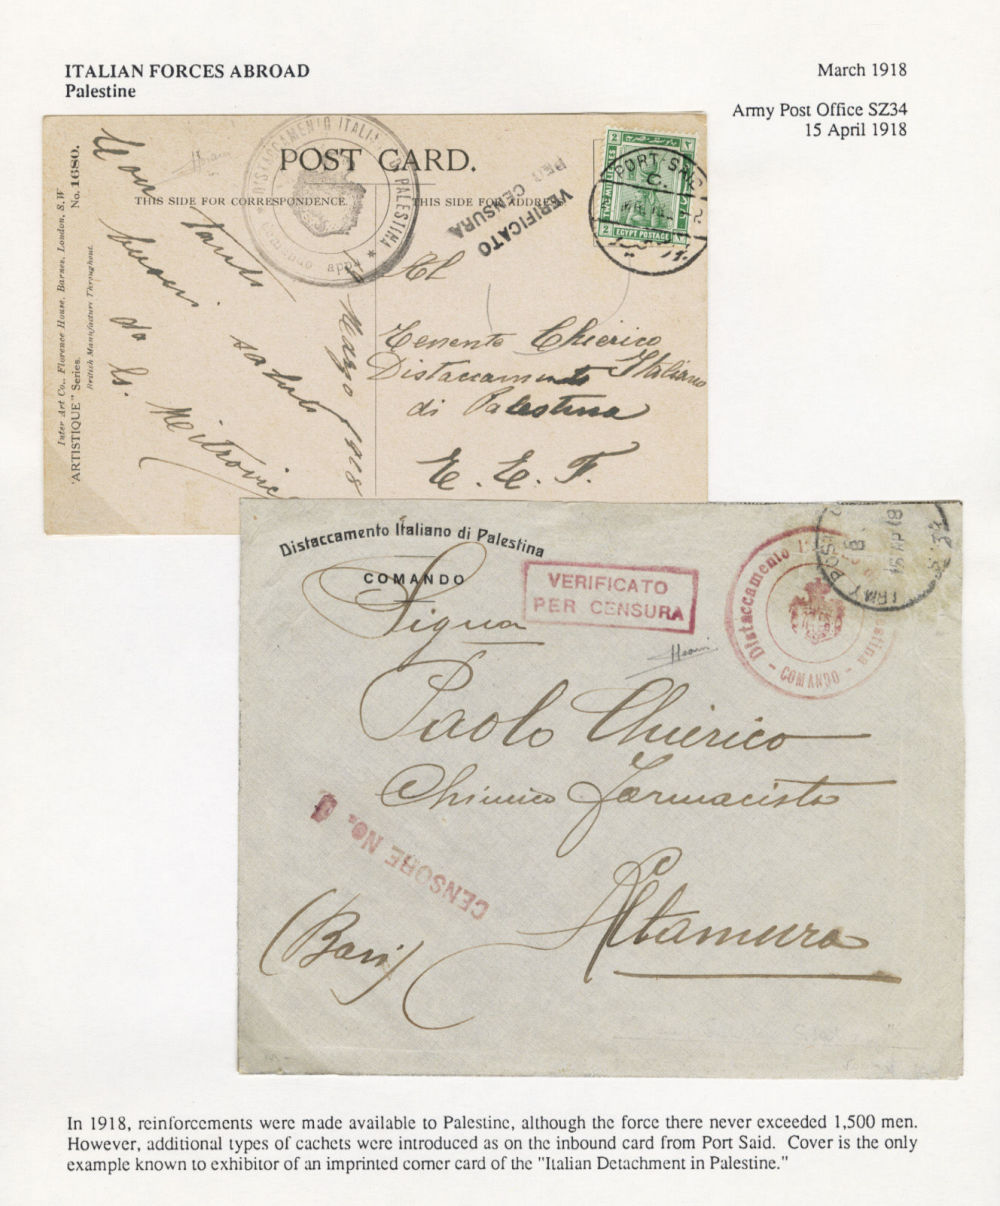 ITALIAN FORCES ABROAD
Palestine
March 1918
Army Post Office SZ34
15 April 1918
POST CARD.
THIS SIDE FOR CORRESPONDENCE.
THIS SIDE FOR ADDRESS
Inter Art Co., Florence House, Barnes, London, S.W
British Manufacture Throughout.
"ARTISTIQUE" Series.
No. 1680.
DISTACCAMENTO ITALIANO PALESTINA
VERIFICATO
PER CENSURA
2 2
TWO MILLIEMES
2 EGYPT POSTAGE
PORT-SAID
C.
Con
tanti
buoni
saluti
da
G. Mitrovic
Marzo 1918
Al
Tenente Chierico
Distaccamento Italiano
di Palestina
E. E. F.
Distaccamento Italiano di Palestina
COMANDO
VERIFICATO
PER CENSURA
Distaccamento
- COMANDO -
ARMY POST
15 AP 18
SZ 34
Signa
Paolo Chierico
Chimico Farmacista
Altamura
(Bari)
CENSORE No.
In 1918, reinforcements were made available to Palestine, although the force there never exceeded 1,500 men.
However, additional types of cachets were introduced as on the inbound card from Port Said. Cover is the only
example known to exhibitor of an imprinted corner card of the "Italian Detachment in Palestine."